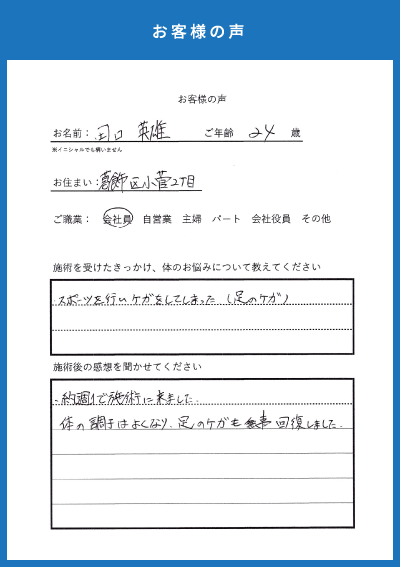 お客様の声
お客様の声
お名前： 田口 英雄 ご年齢 24 歳
※イニシャルでも構いません
お住まい：葛飾区小菅2丁目
ご職業： 会社員 自営業 主婦 パート 会社役員 その他
施術を受けたきっかけ、体のお悩みについて教えてください
スポーツを行いケガをしてしまった（足のケガ）
施術後の感想を聞かせてください
・約週1で施術に来ました.
体の調子はよくなり.足のケガも無事回復しました.